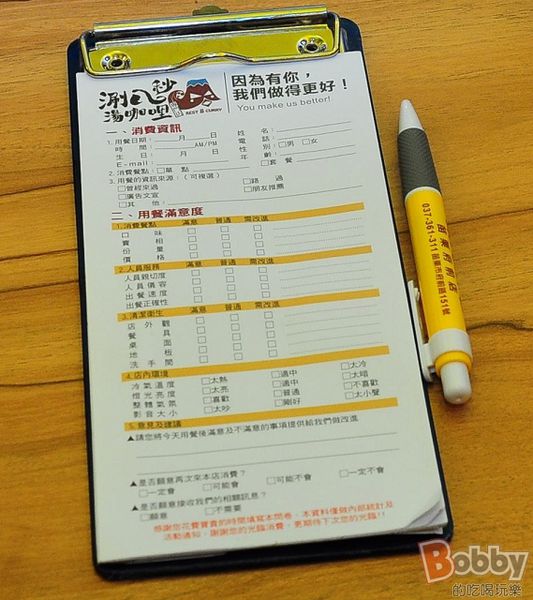 涮八秒
湯咖哩
BEST 8 CURRY
因為有你，
我們做得更好！
You make us better!
一、消費資訊
1.用餐日期： 月 日 姓 名：
時 間： AM/PM 電 話：
生 日： 月 日 性 別：□男 □女
E-mail： 年 齡：
2.消費餐點：□單 點 □套 餐
3.用餐的資訊來源：（可複選）
□曾經來過 □路 過
□廣告文宣 □朋友推薦
□其 他：
二、用餐滿意度
1.消費餐點 滿意 普通 需改進
口 味 □ □ □
賣 相 □ □ □
份 量 □ □ □
價 格 □ □ □
2.人員服務 滿意 普通 需改進
人員親切度 □ □ □
人員儀容 □ □ □
出餐速度 □ □ □
出餐正確性 □ □ □
3.清潔衛生 滿意 普通 需改進
店外觀 □ □ □
餐 具 □ □ □
桌 面 □ □ □
地 板 □ □ □
洗手間 □ □ □
4.店內環境
冷氣溫度 □太熱 □適中 □太冷
燈光亮度 □太亮 □適中 □太暗
整體氣氛 □喜歡 □普通 □不喜歡
影音大小 □太吵 □剛好 □太小聲
5.意見及建議
▲請您將今天用餐後滿意及不滿意的事項提供給我們做改進
▲是否願意再次來本店消費？
□一定會 □可能會 □可能不會 □一定不會
▲是否願意接收我們的相關訊息？
□願意 □不需要
感謝您花費寶貴的時間填寫本問卷，本資料僅做內部統計及
活動通知，謝謝您的光臨消費，更期待下次您的光臨!!
苗栗府前店
037-361-311 苗栗市府前路151號
Bobby
的吃喝玩樂